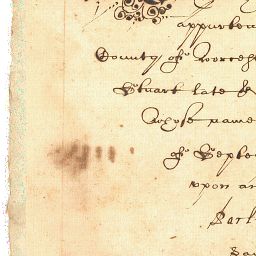 appurten
County of Worcest
Stuart late
Whose name
of Septe
upon an